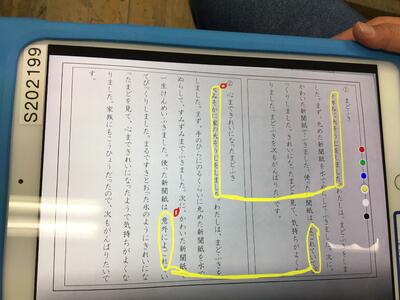 S202199
① まどふき
大そうじをしました。わたしは、まどふきをしま
した。まず、丸めた新聞紙を水で
かわいた新聞紙でふきました。使った新聞紙は
っくりしました。きれいになったまどを見て、気持ちがよくな
りました。まどふきを次もがんばりたいです。
② 心まできれいになったまどふき
大みそかに家の大そうじをしました。わたしは、まどふきを
しました。まず、手のひらにのるくらいに丸めた新聞紙を水で
ぬらして、すみずみまでふきました。次に、かわいた新聞紙で
一生けんめいふきました。使った新聞紙は意外によごれてい
てびっくりしました。まるですきとおった水のようにきれいにな
ったまどを見て、心まできれいになったようで気持ちがよくな
りました。家族にもこうひょうだったので、次もがんばりたいで
す。